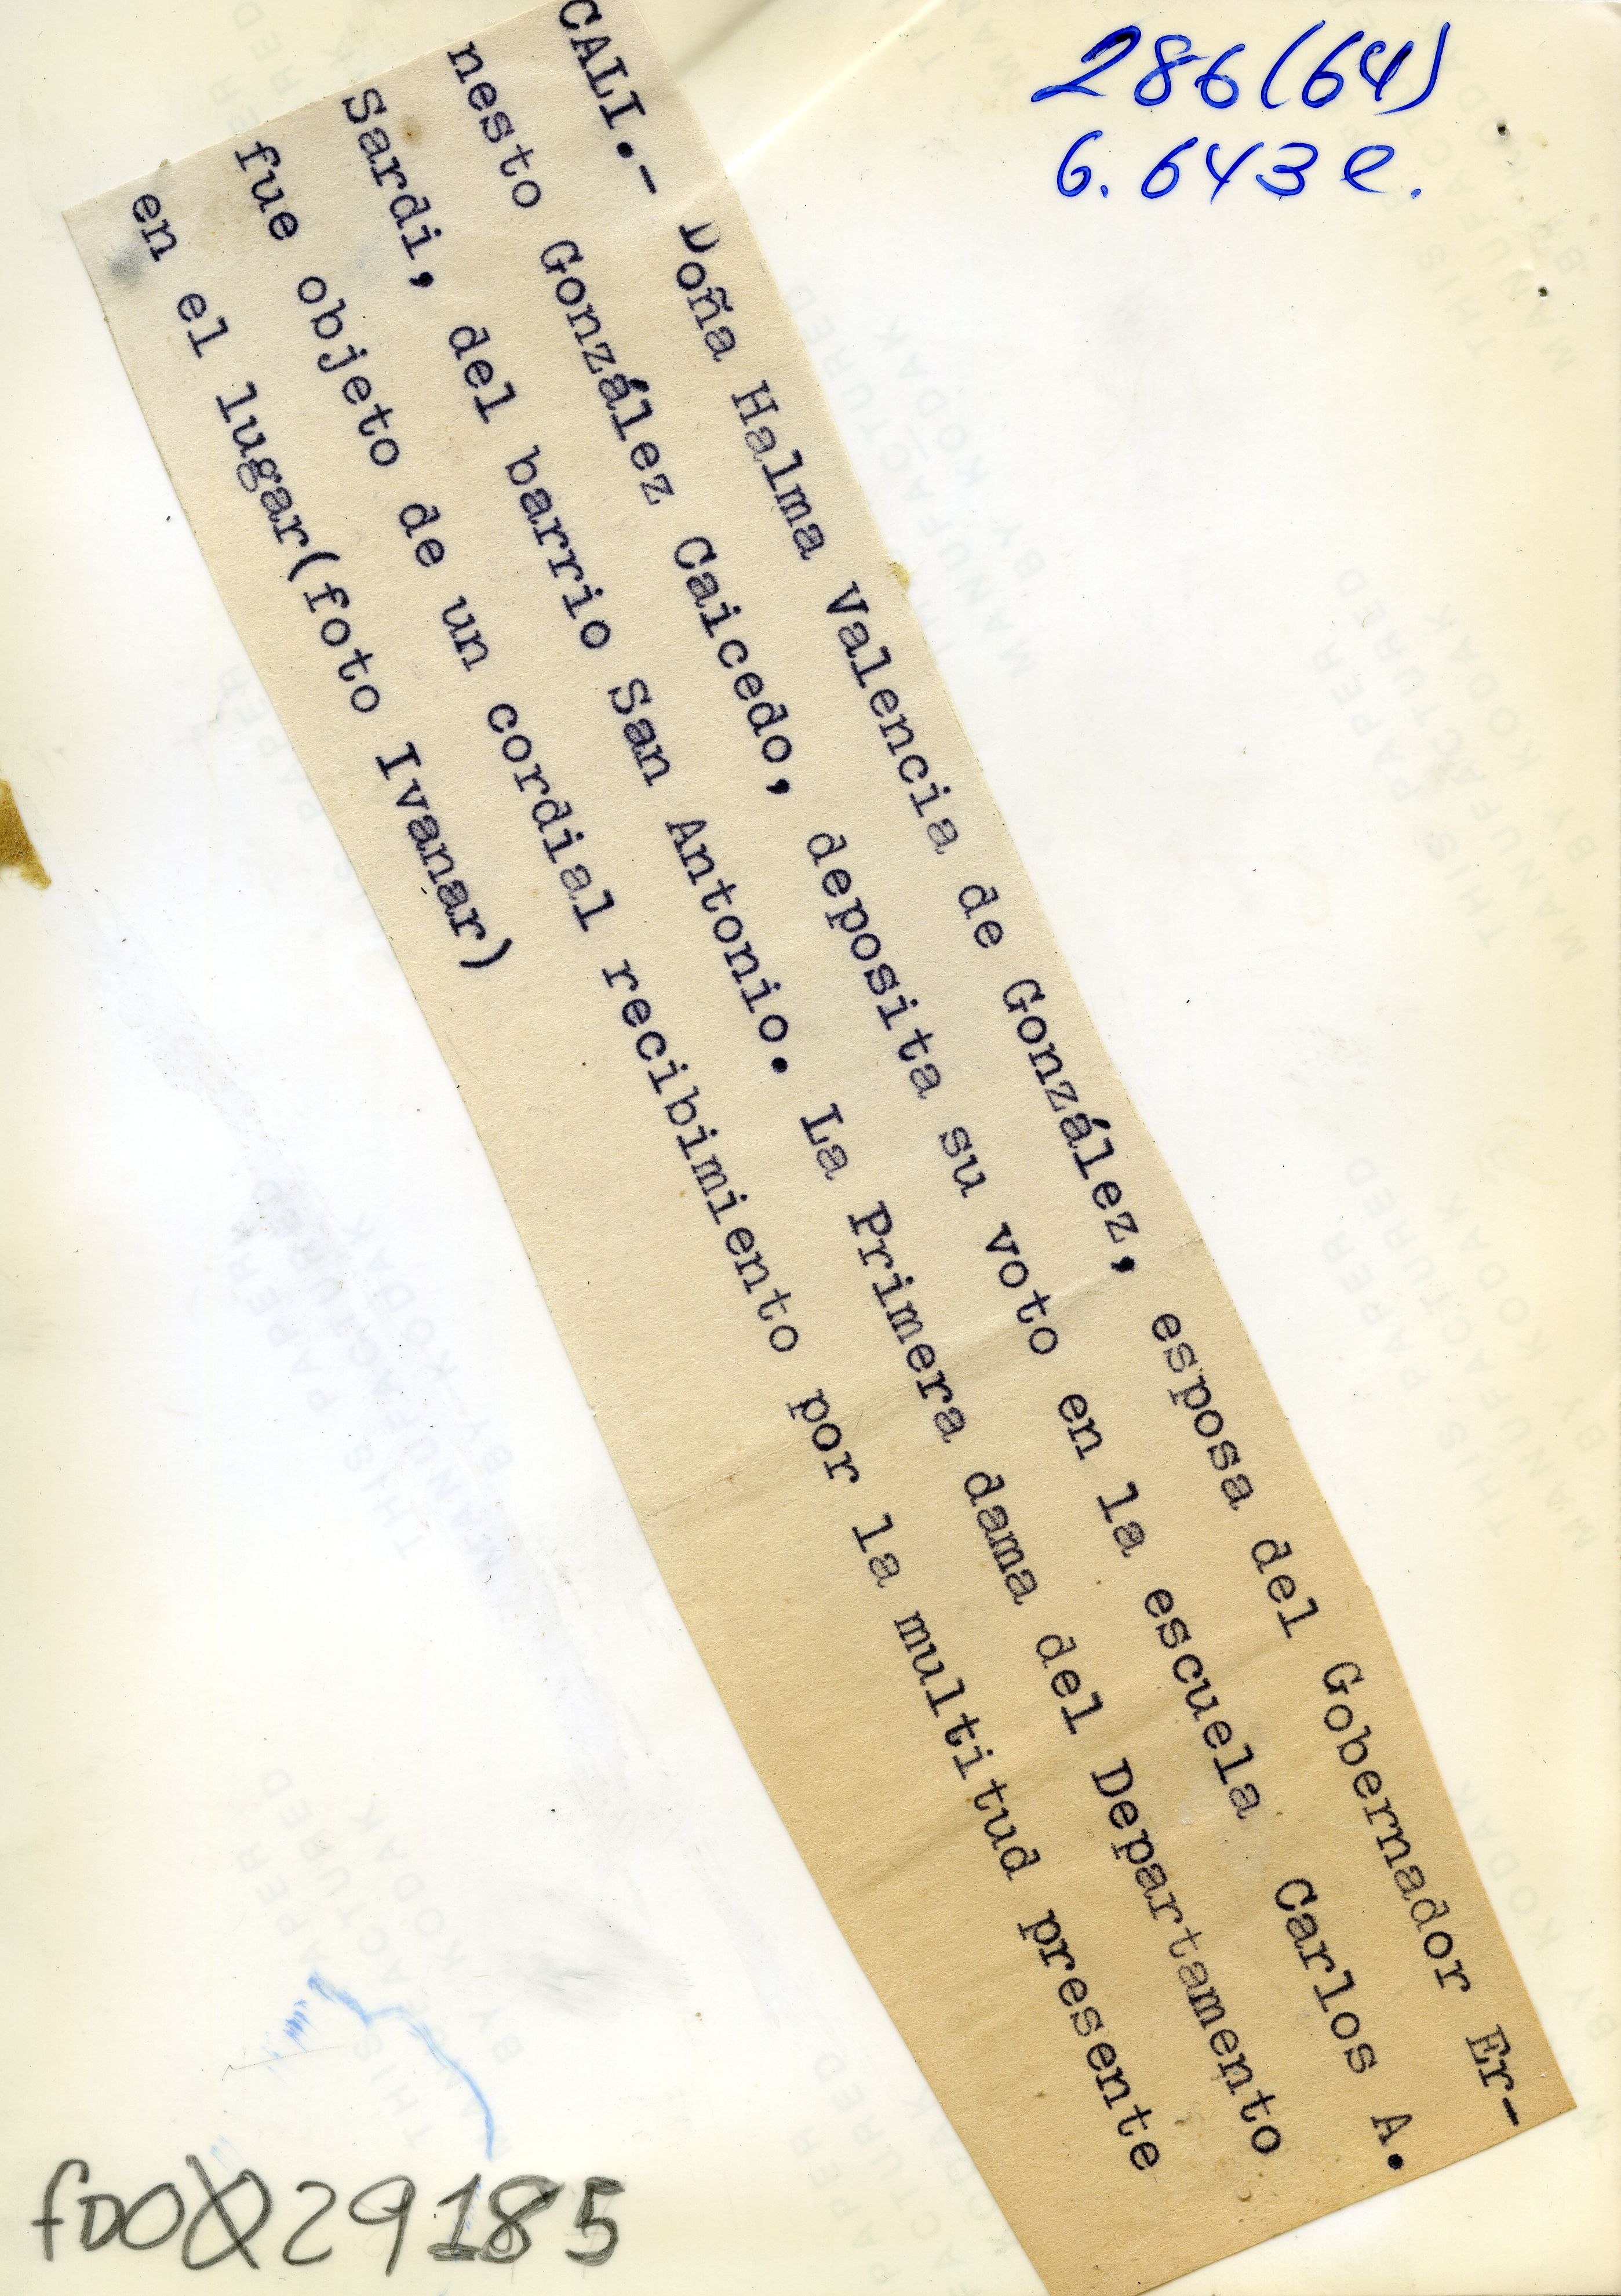 286(64)
6.643e.
CALI.- Doña Halma Valencia de González, esposa del Gobernador Er-
nesto González Caicedo, deposita su voto en la escuela Carlos A.
Sardi, del barrio San Antonio. La Primera dama del Departamento
fue objeto de un cordial recibimiento por la multitud presente
en el lugar(foto Ivanar)
THIS PAPER
MANUFACTURED
BY KODAK